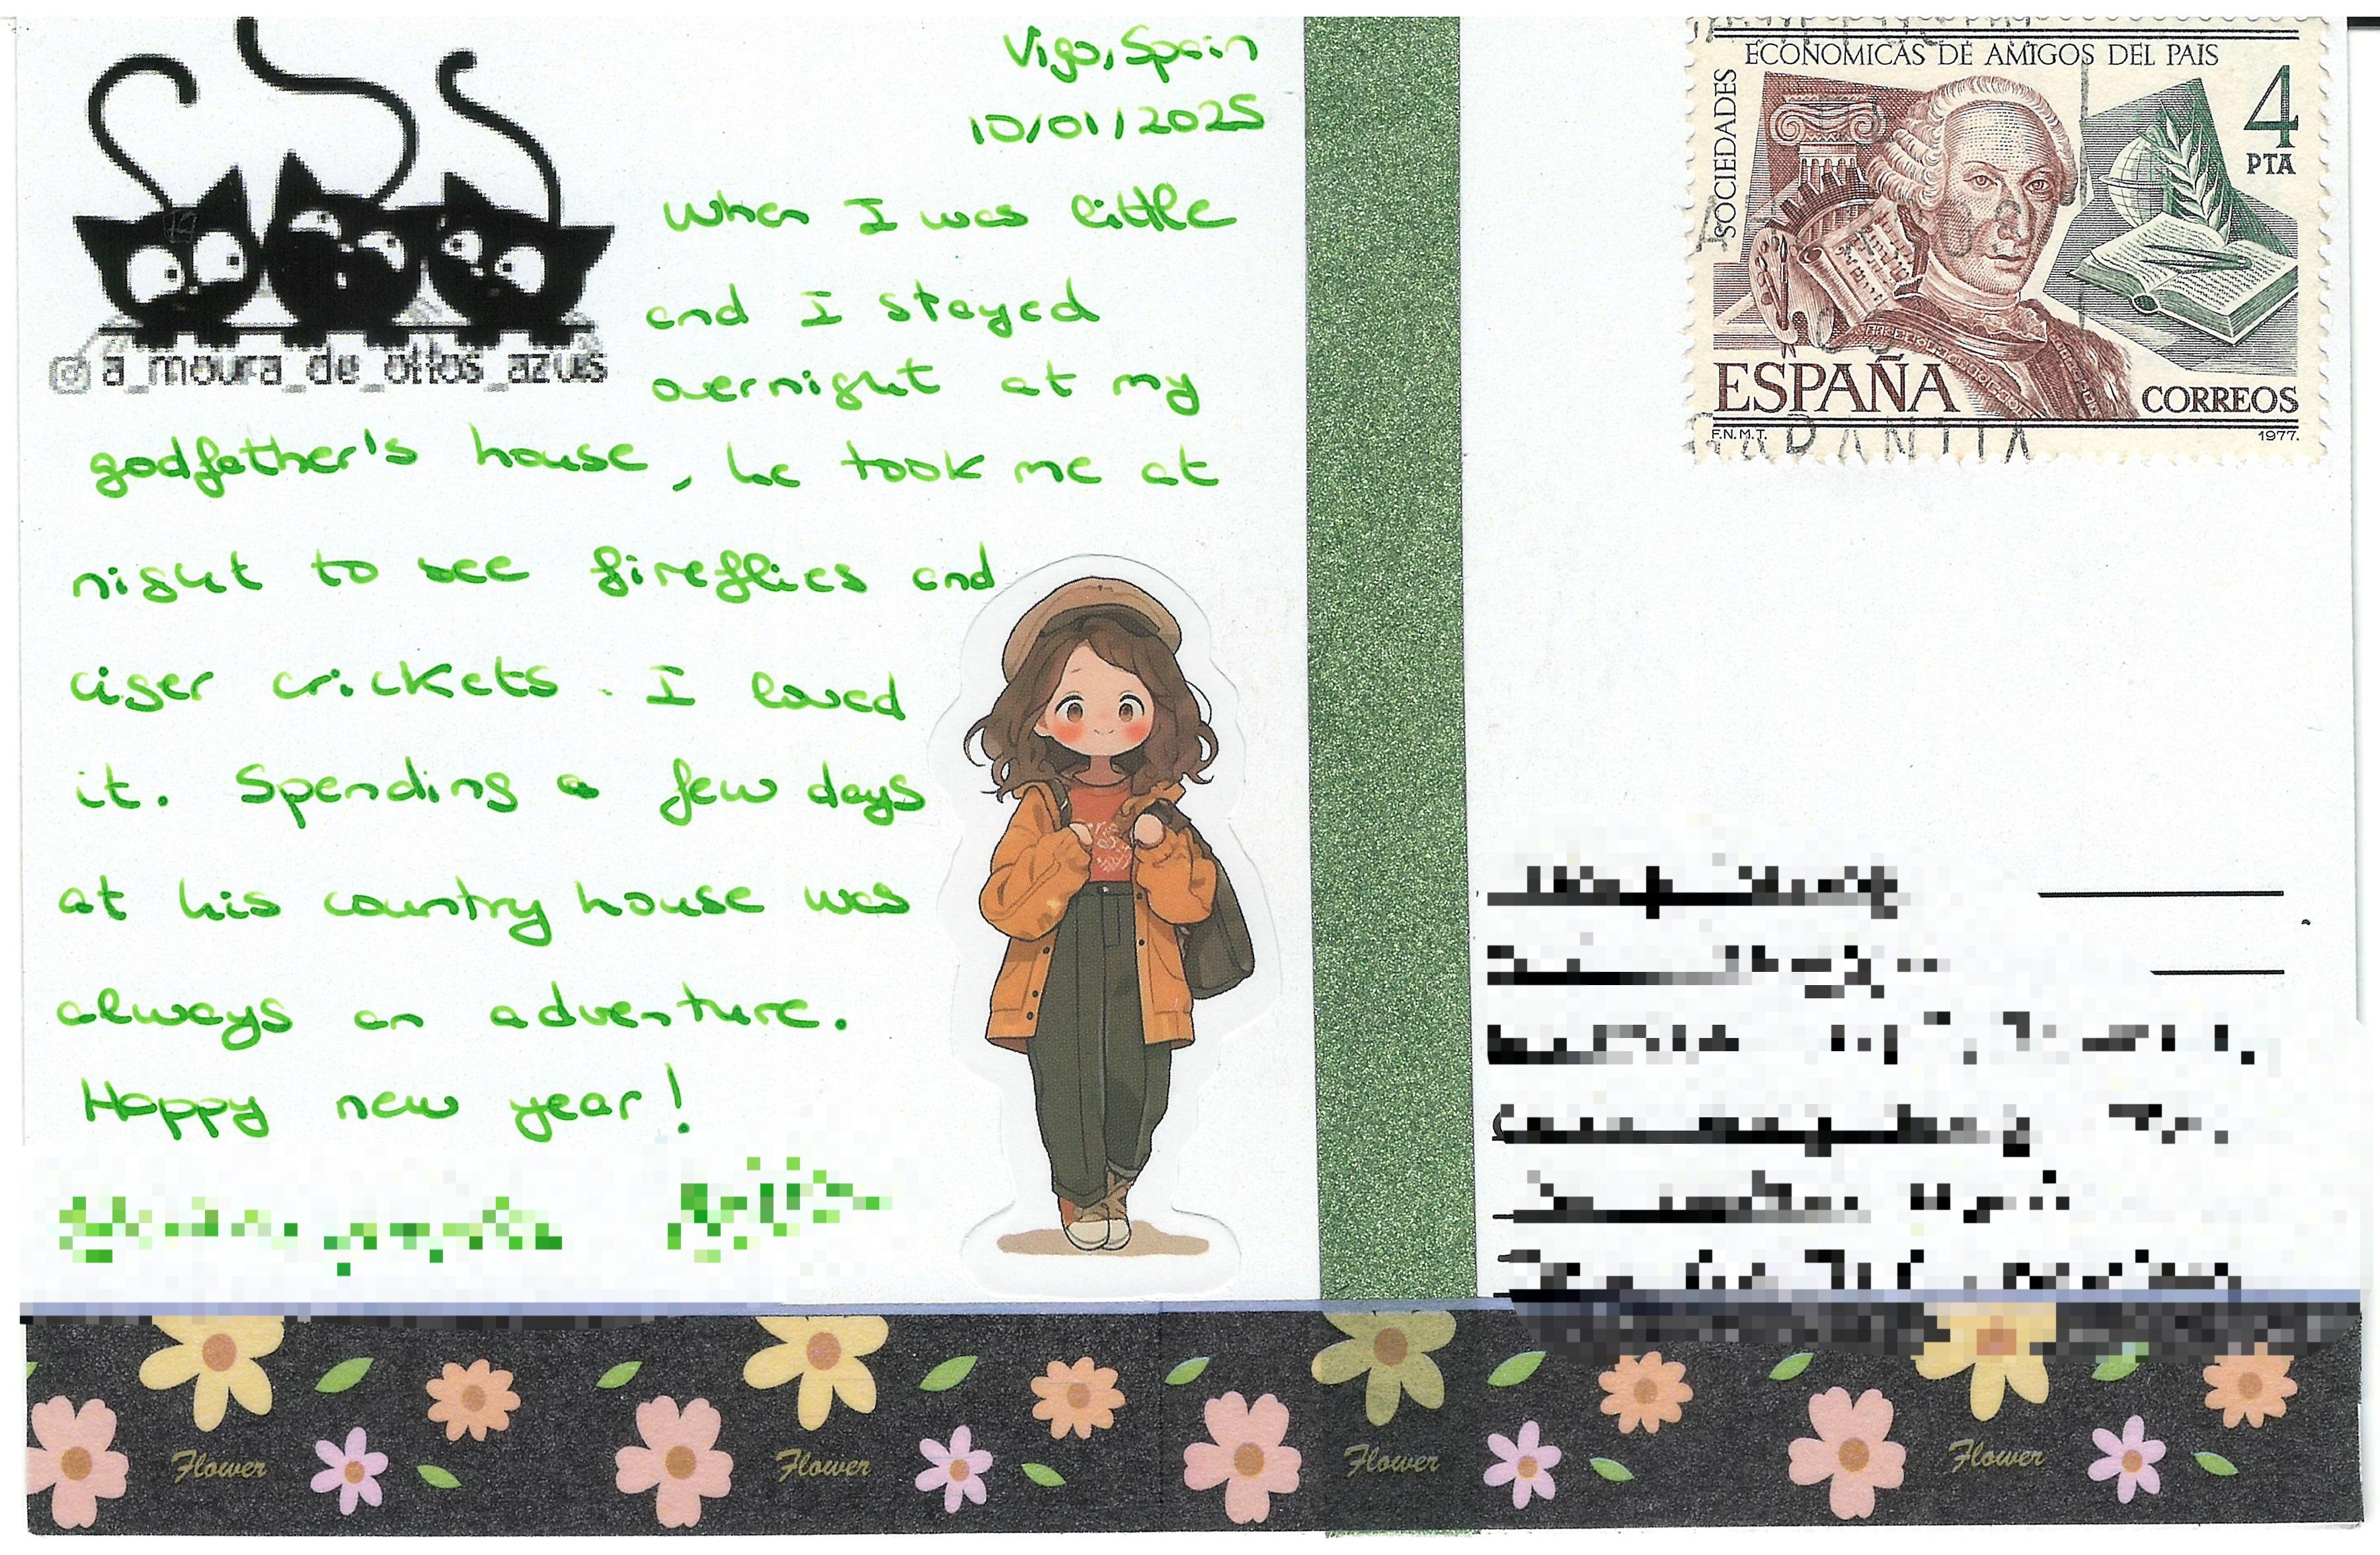 @a_moura_de_ollos_azuis
Vigo, Spain
10/01/2025
When I was little
and I stayed
overnight at my
godfather's house, he took me at
night to see fireflies and
ciger crickets. I loved
it. Spending a few days
at his country house was
always an adventure.
Happy new year!
SOCIEDADES
ECONOMICAS DE AMIGOS DEL PAIS
4
PTA
ESPAÑA
CORREOS
F.N.M.T.
1977.
Flower
Flower
Flower
Flower